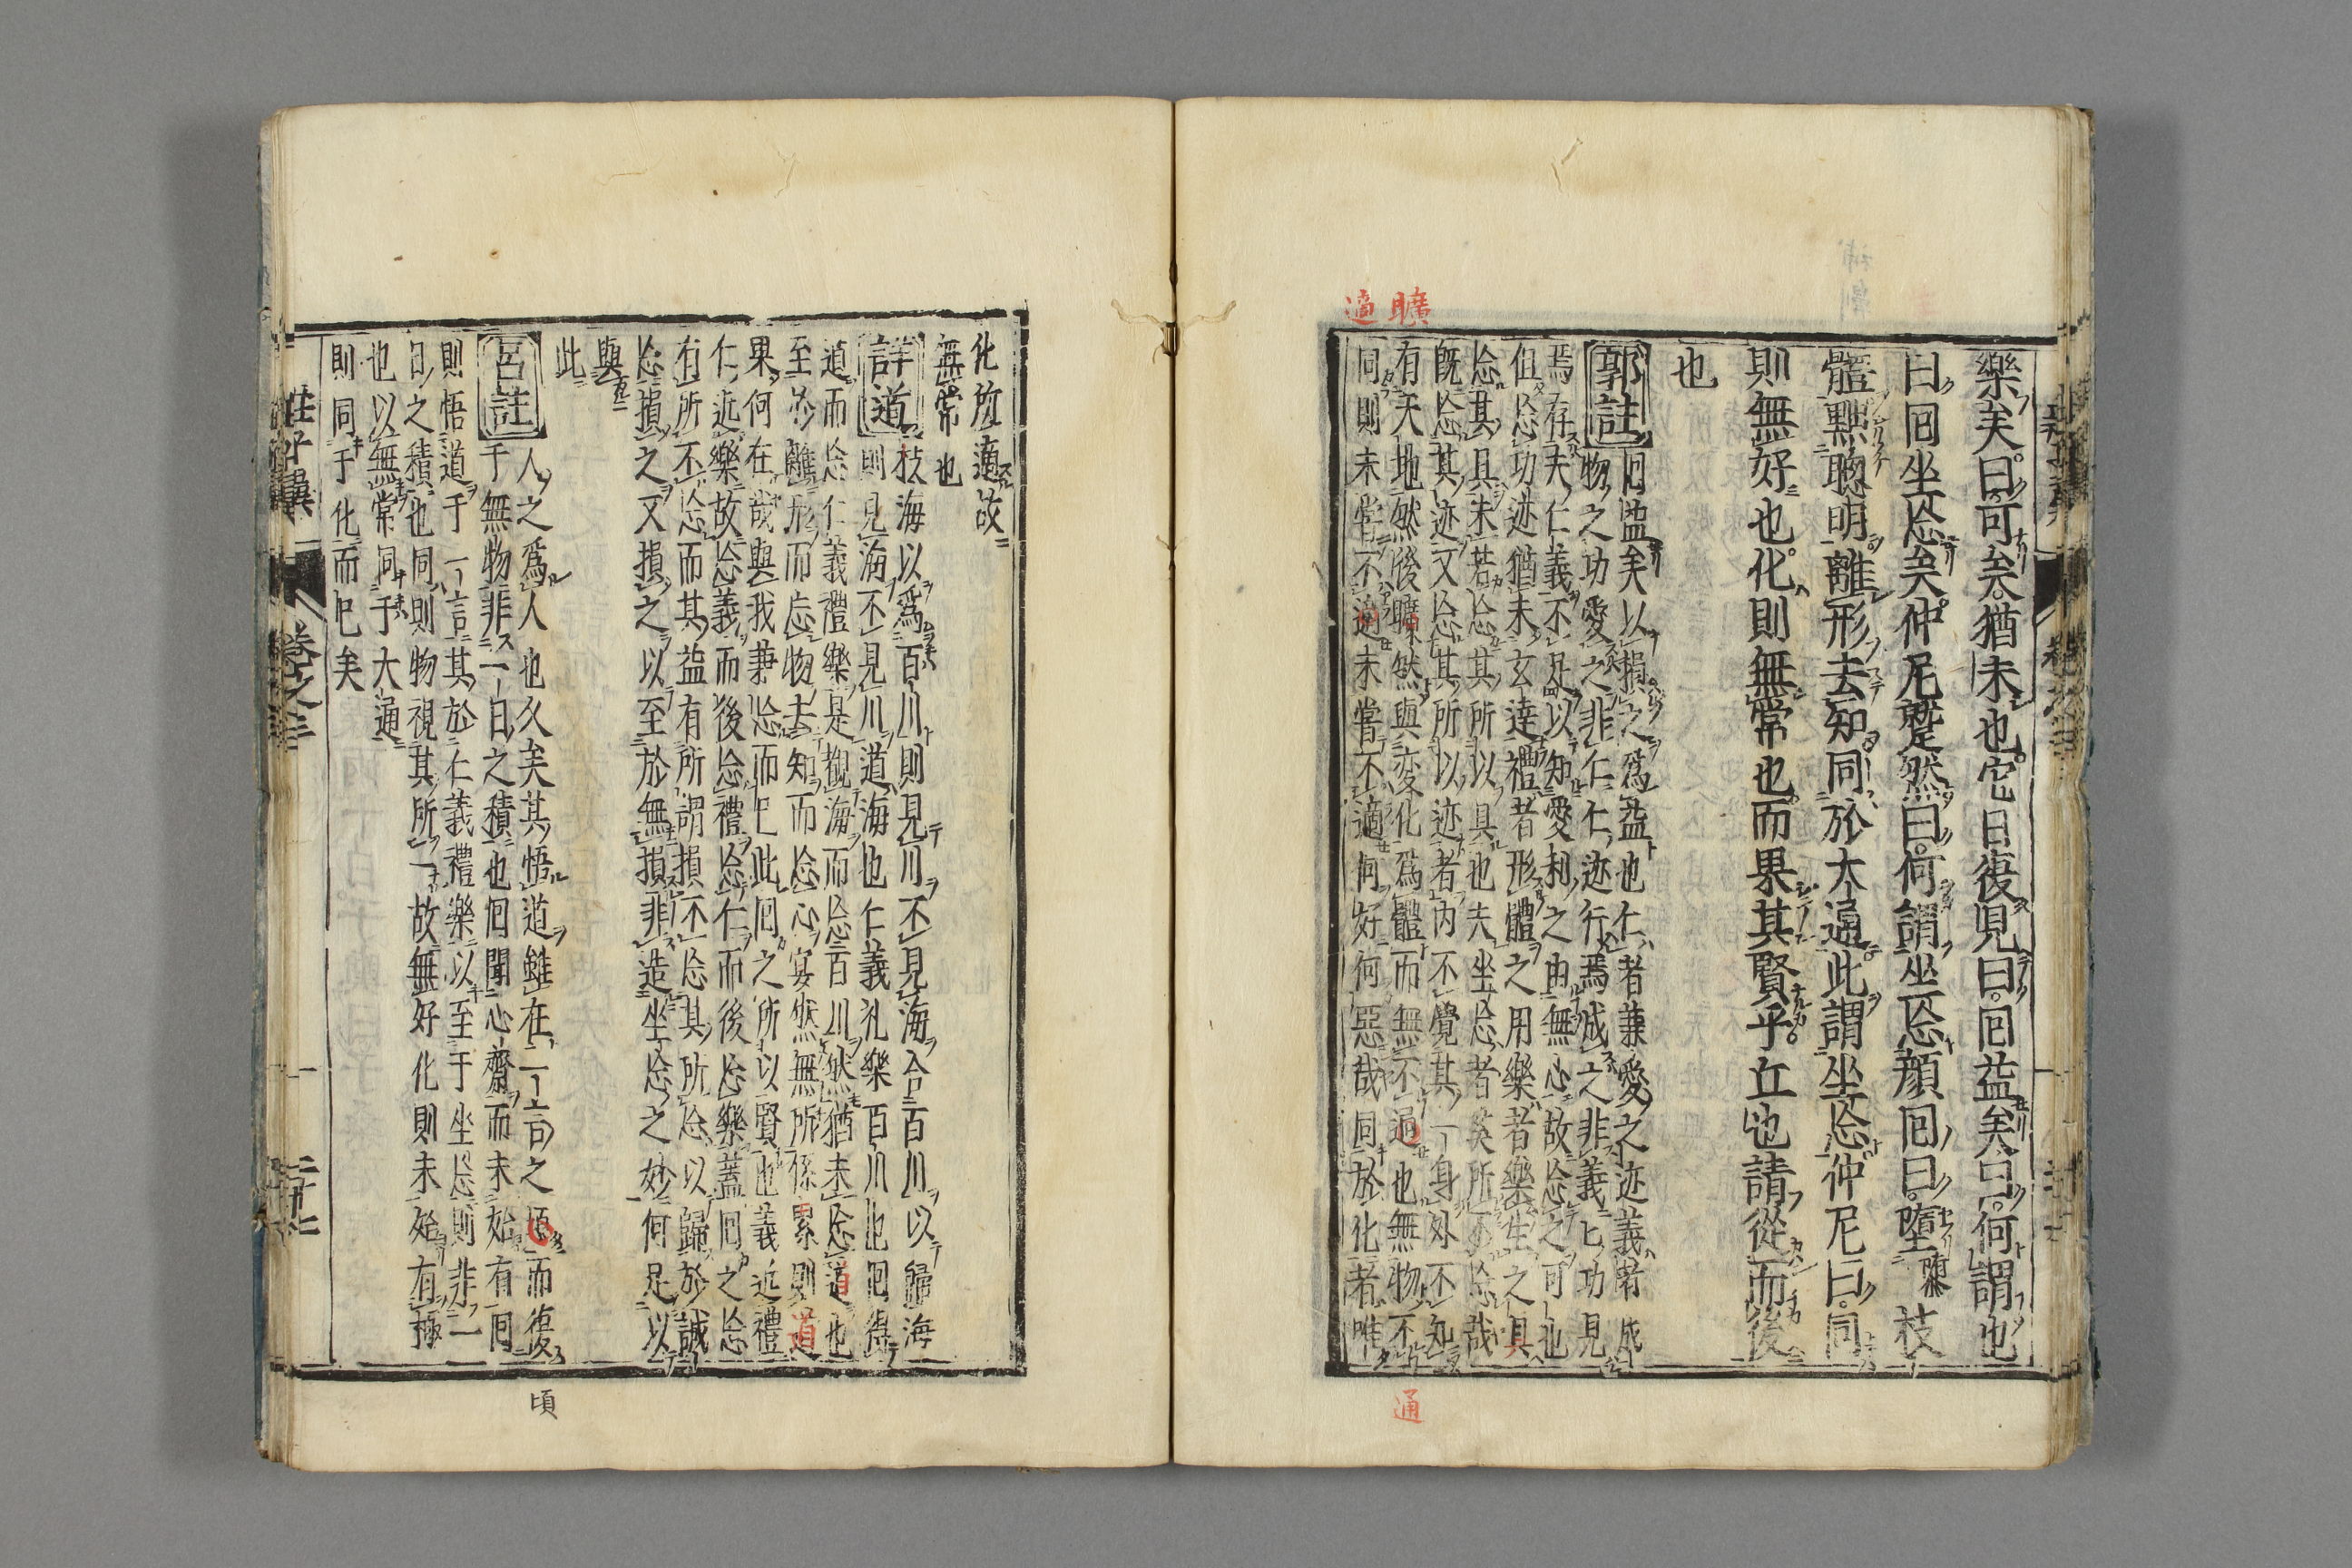 樂矣曰可矣猶未也它日復見曰囘益矣曰何謂也
曰囘坐忘矣仲尼蹵然曰何謂坐忘顔囘曰墮枝
體黜聰明離形去知同於大通此謂坐忘仲尼曰同
則無好也化則無常也而果其賢乎丘也請從而後
也
郭註
囘益矣以損之爲益也仁者兼愛之迹義者成
物之功愛之非仁仁迹行焉成之非義義功見
焉存夫仁義不足以知愛利之由無心故忘之可也
但忘功迹猶未玄達禮者形體之用樂者樂生之具
忘其具未若忘其所以具也夫坐忘者奚所不忘哉
旣忘其迹又忘其所以迹者内不覺其一身外不知
有天地然後曠然與変化爲體而無不通也無物不
同則未嘗不適未嘗不適何好何惡哉同於化者唯
曠
適
通
化所適故
無常也
詳道
枝海以爲百川則見川不見海合百川以歸海
則見海不見川道海也仁義礼樂百川也囘得
道而忘仁義禮樂是觀海而忘百川然猶未忘道也
至於離形而忘物去知而忘心宴然無所係累則道
果何在哉與我兼忘而已此囘之所以賢也義近禮
仁近樂故忘義而後忘禮忘仁而後忘樂蓋囘之忘
有所不忘而其益有所謂損不忘其所忘以歸於誠
忘損之又損之以至於無損非造坐忘之妙何足以
與
此
呂註
人之爲人也久矣其悟道雖在一言之頃而復
于無物非一日之積也囘聞心齋而未始有囘
則悟道于一言其於仁義禮樂以至于坐忘則非一
日之積也同則物視其所一故無好化則未始有極
也以無常同于大通
則同于化而已矣
莊子翼
卷之三
二十七
頃